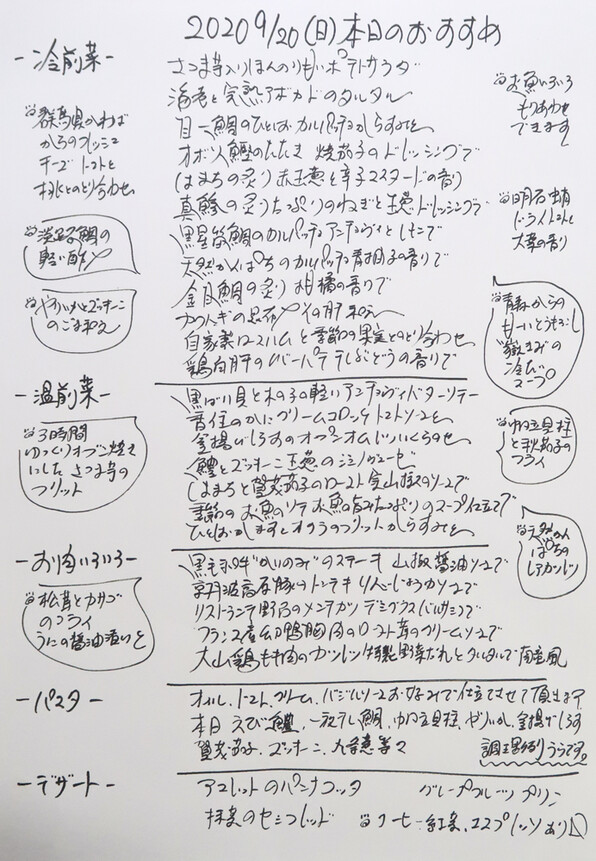 2020 9/20(日)本日のおすすめ
-冷前菜-
さつま芋入りほんのり甘いポテトサラダ
海老と完熟アボカドのタルタル
目一鯛のひとしおカルパッチョからすみを
オボソ鰹のたたき 焼茄子のドレッシングで
はまちの炙り 赤玉葱と辛子マスタードの香り
真鯵の炙りたっぷりのねぎと玉葱ドレッシングで
黒星笛鯛のカルパッチョ アンチョヴィとレモンで
天然かんぱちのカルパッチョ青柚子の香りで
金目鯛の炙り 柑橘の香りで
カワハギの昆布〆 その肝和え
自家製ロースハムと季節の果実とのとり合わせ
鶏白肝のレバーパテ干しぶどうの香りで
お魚いろいろ
もりあわせ
できます
明石蛸
ドライトマトと
大葉の香り
青森からの
もーいとうもろこし
"嶽きみ"の
冷たい
スープ
群馬県かわば
からのフレッシュ
チーズ トマトと
桃とのとり合わせ
淡路鯛の
軽い酢〆
やりいかとズッキーニ
のごま和え
-温前菜-
黒ばい貝と木の子の軽いアンチョヴィバターソテー
香住のかにクリームコロッケ トマトソースを
釜揚げしらすのオープンオムレツ いくらのせ
鱧とズッキーニ 玉葱の
はまちと賀茂茄子のロースト 実山椒のソースで
季節のお魚のソテ お魚の旨みたっぷりのスープ仕立てで
ひとしおかますとオクラのフリット からすみを
3時間
ゆっくりオーブン焼き
にした さつま芋の
フリット
帆立貝柱
と秋茄子の
フライ
天然かん
ぱちの
レアカツレツ
-お肉いろいろ-
黒毛和牛"かいのみ"のステーキ 山椒醤油ソースで
京丹波高原豚のトンテキ りんごしょうがソースで
リストランテ野呂のメンチカツ デミグラスバルサミコで
フランス産 鴨胸肉のロースト 茸のクリームソースで
大山鶏もも肉のカツレツ 特製野菜だれとタルタルで南蛮風
松茸とカサゴ
のフライ
うにの醤油添えを
-パスタ-
オイル、トマト、クリーム、バジルソースお好みで仕立てさせて頂きます
本日 えび、鱧、一夜干し鯛、帆立貝柱、やりいか、釜揚げしらす
賀茂茄子、ズッキーニ、九条葱 等々
調理長例りうらです。
-デザート-
アプリコットのパンナコッタ
グレープフルーツプリン
抹茶のセミフレッド
コーヒー、紅茶、エスプレッソあり